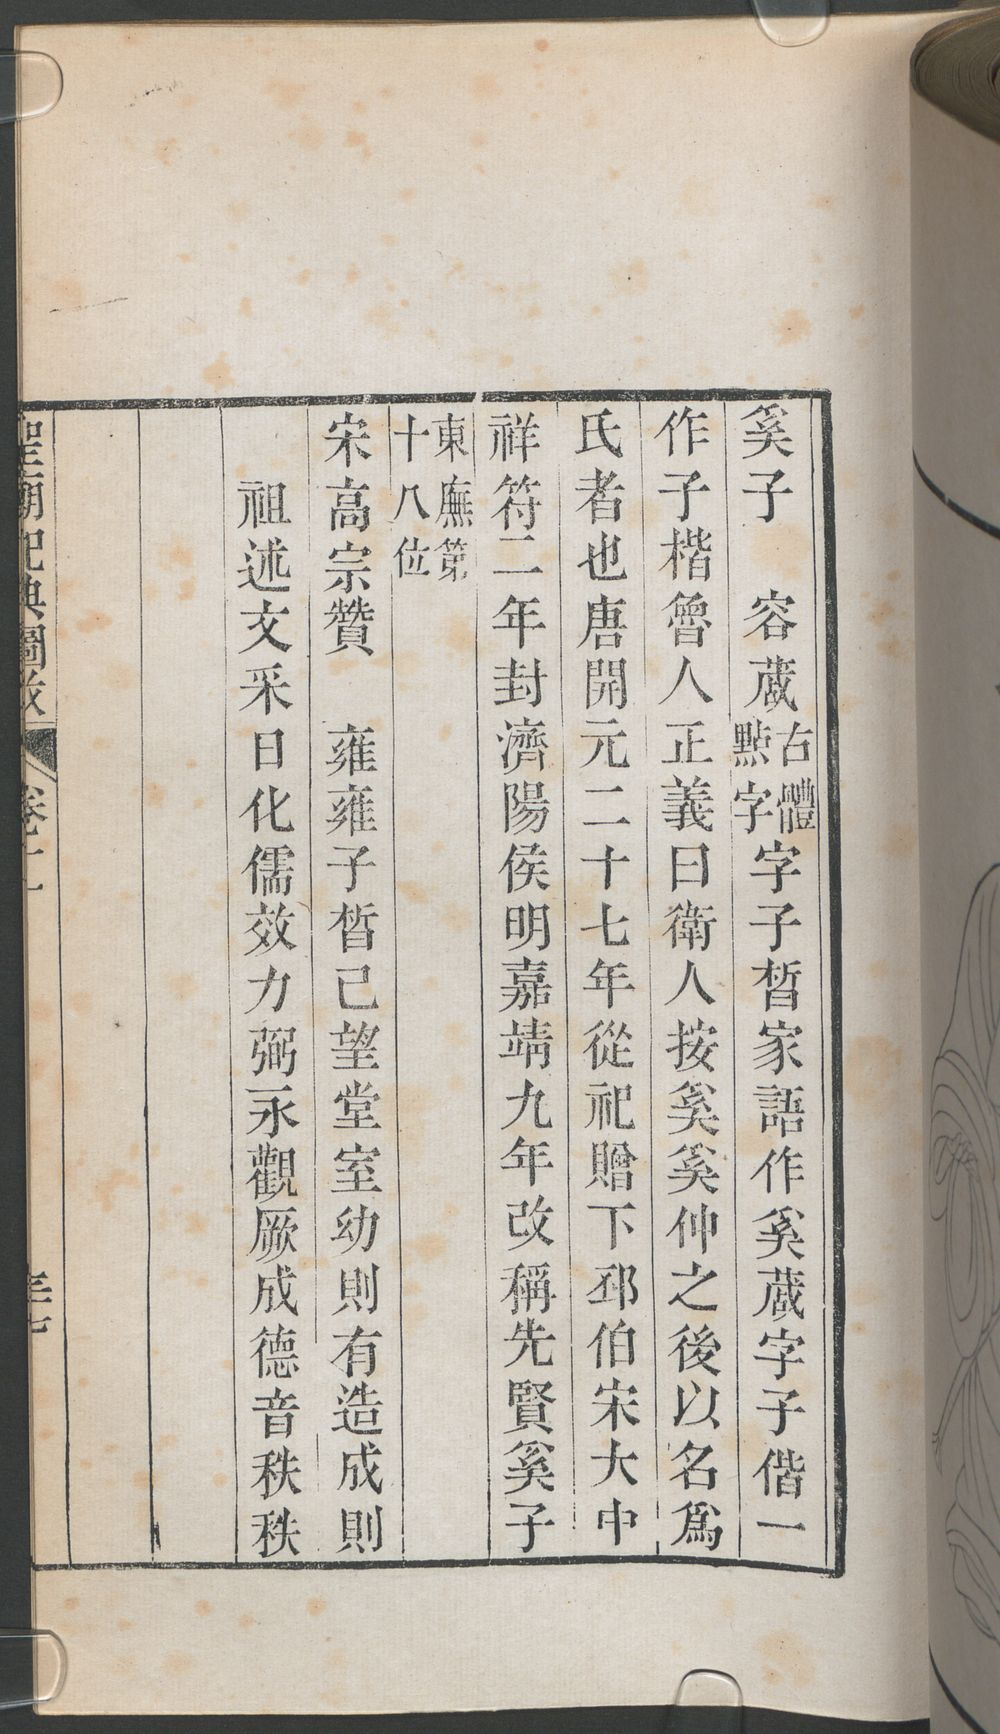 奚子　容蒧古體點字字子皙家語作奚蒧字子偕一
作子楷魯人正義曰衛人按奚奚仲之後以名爲
氏者也唐開元二十七年從祀贈下邳伯宋大中
祥符二年封濟陽侯明嘉靖九年改稱先賢奚子
東廡第十八位
宋高宗贊　雍雍子皙已望堂室幼則有造成則
祖述文采日化儒效力弼永觀厥成德音秩秩
聖廟祀典圖攷　卷二　三七